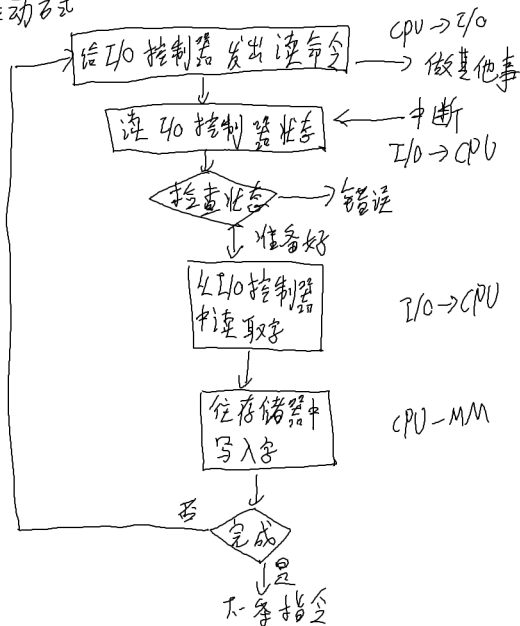 动方式
CPU→I/O
给I/O控制器发出读命令
做其他事
读I/O控制器状态
中断
I/O→CPU
检查状态
错误
准备好
从I/O控制器
中读取字
I/O→CPU
往存储器中
写入字
CPU-MM
否
完成
是
下一条指令